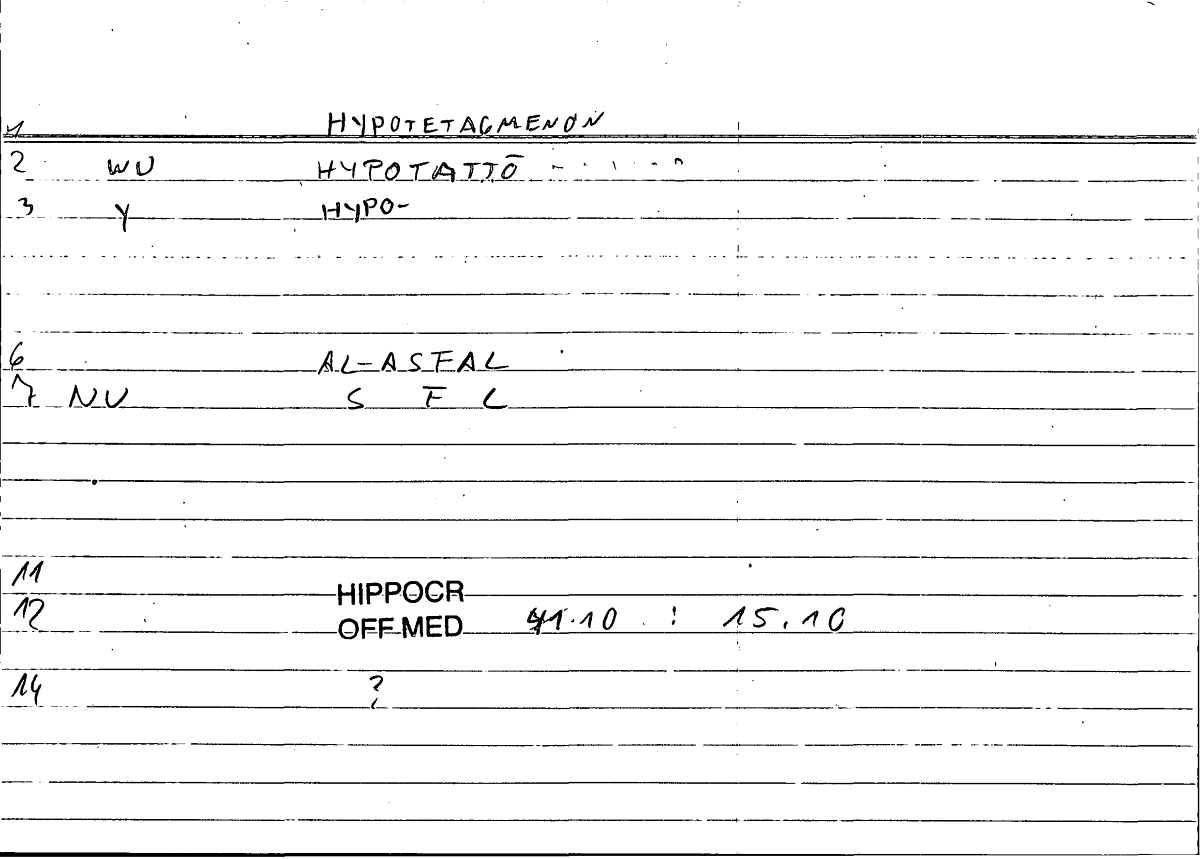 1 HYPOTETAGMENON
2 WU HYPOTATTŌ
3 Y HYPO-
6 AL-ASFAL
7 NU S F L
11 HIPPOCR
12 OFF MED 41.10 : 15.10
14 ?